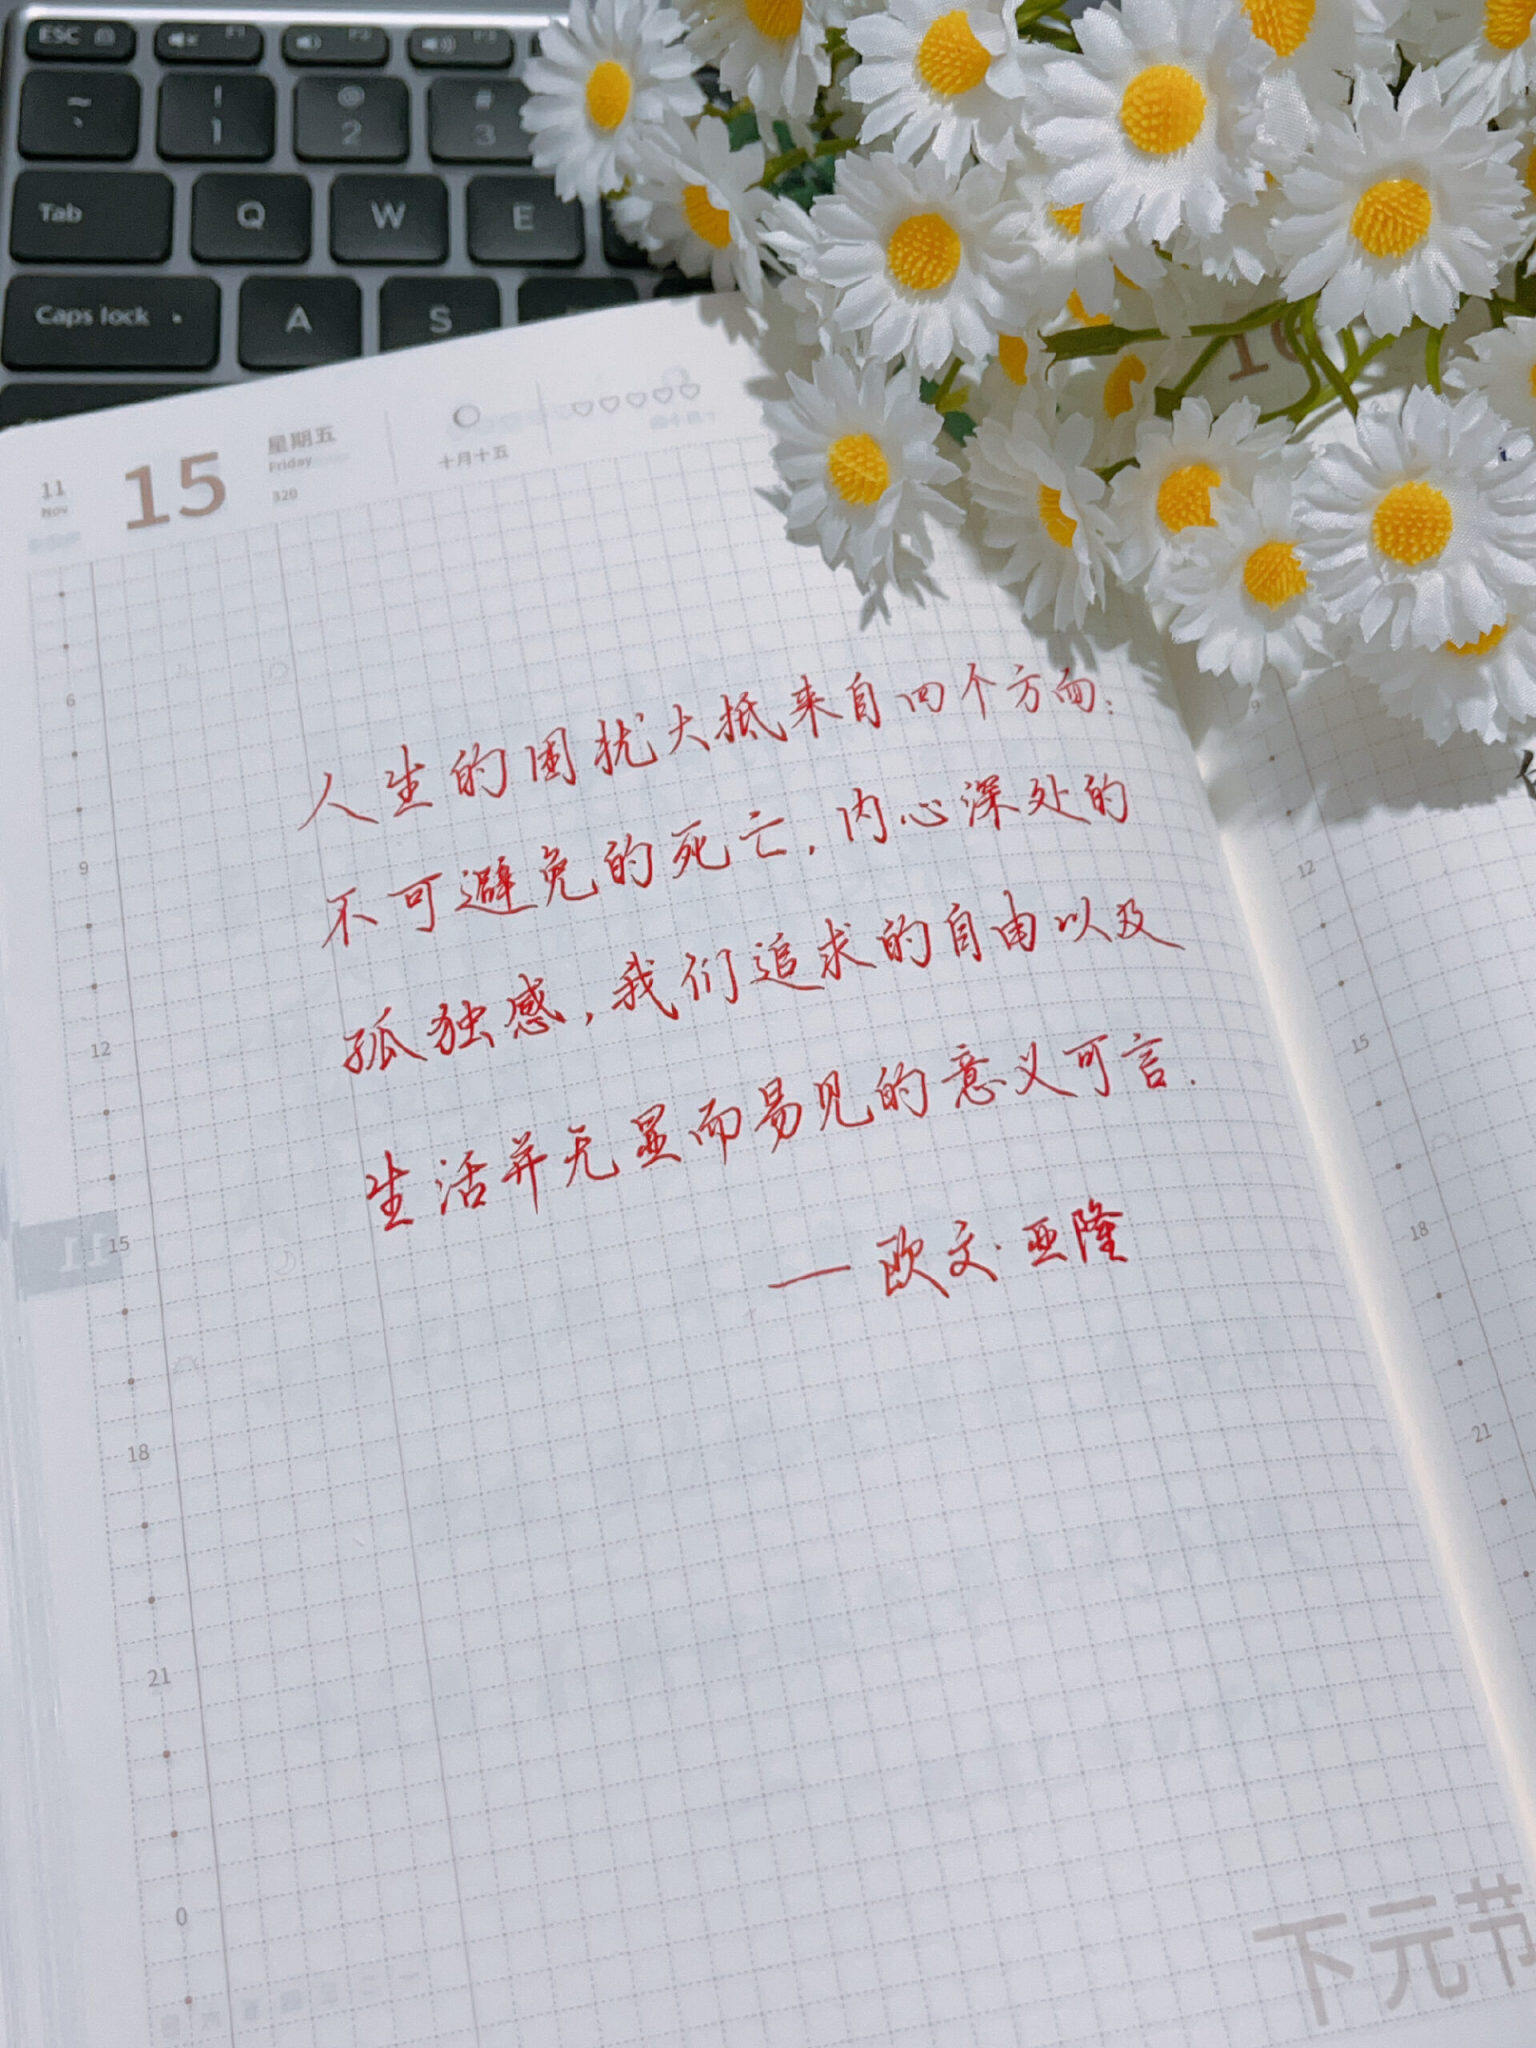 ESC F1 F2 F3
~ ` ! 1 @ 2 # 3
Tab Q W E
Caps lock A S
11
Nov
15
星期五
Friday
320
十月十五
人生的困扰大抵来自四个方向：
不可避免的死亡，内心深处的
孤独感，我们追求的自由以及
生活并无显而易见的意义可言．
——欧文·亚隆
6
9
12
15
18
21
0
11
下元节
9
12
15
18
21